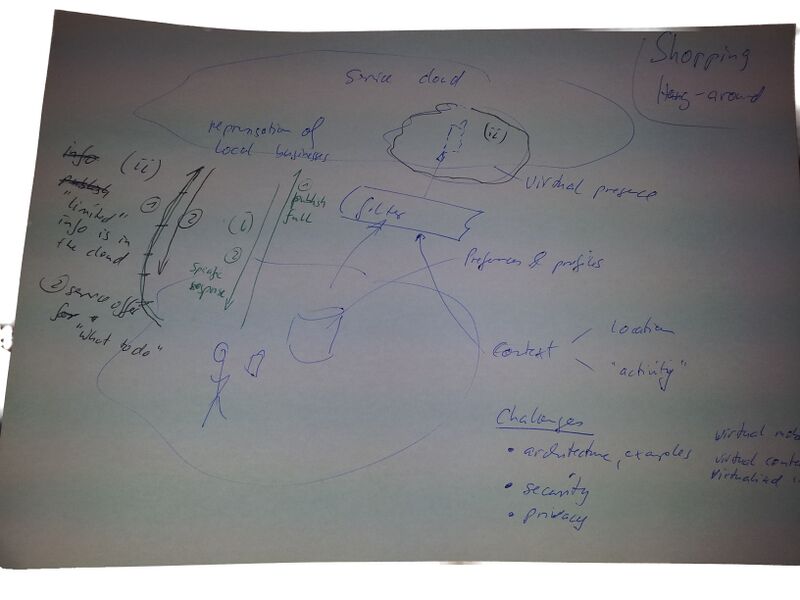 Shopping
Hang-around
Service cloud
(ii)
representation of
local businesses
virtual presence
info
publish
(ii)
"limited"
info is in
the cloud
①
②
② service offer
for
"what to do"
(i)
①
publish
full
②
specific
response
filter
Preferences & profiles
Context
location
"activity"
Challenges
• architecture, examples
• security
• privacy
virtual
virtual
Virtualized